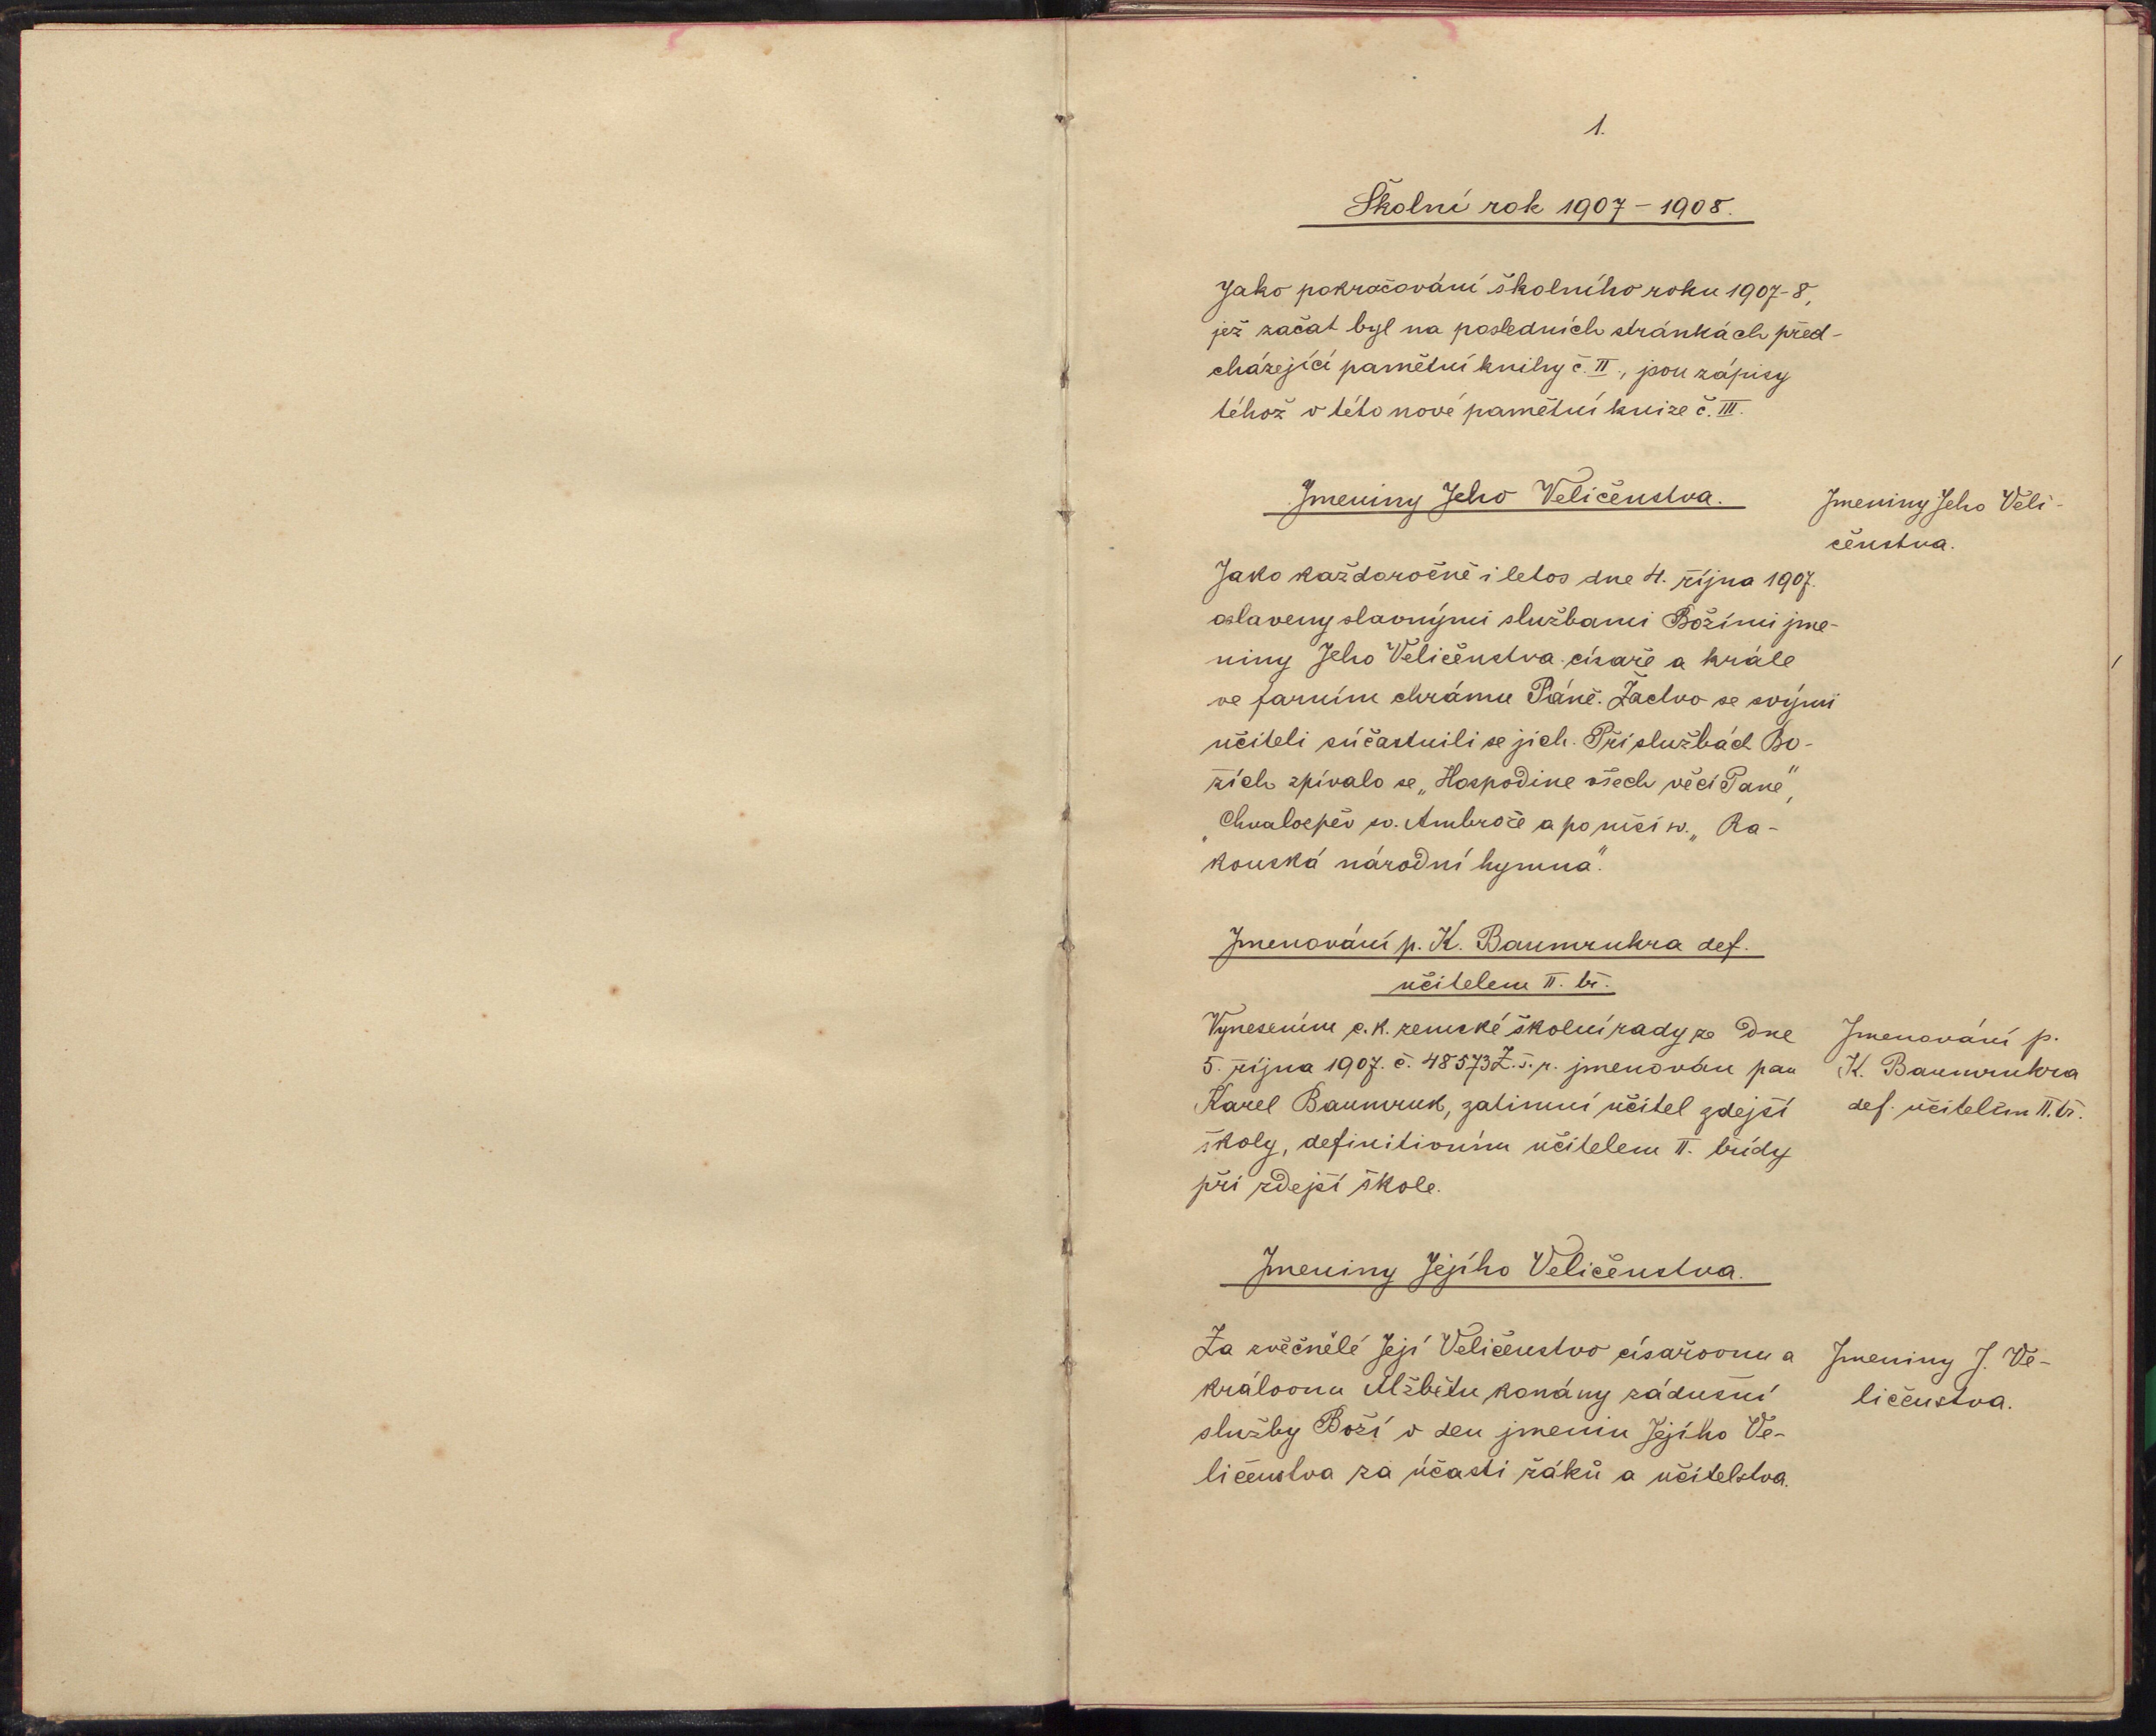 1.
Školní rok 1907-1908.
Jako pokračování školního roku 1907-8,
jež začat byl na posledních stránkách před-
cházející pamětní knihy č. II., jsou zápisy
téhož v této nové pamětní knize č. III.
Jmeniny Jeho Veličenstva.
Jmeniny Jeho Veli-
čenstva.
Jako každoročně i letos dne 4. října 1907.
oslaveny slavnými službami Božími jme-
niny Jeho Veličenstva císaře a krále
ve farním chrámu Páně. Žactvo se svými
učiteli súčastnili se jich. Při službách Bo-
žích zpívalo se „Hospodine všech věcí Pane",
„Chvalozpěv sv. Ambrože a po mši sv. „Ra-
kouská národní hymna".
Jmenování p. K. Baumrukra def.
učitelem II. tř.
Vynesením c. k. zemské školní rady ze dne
5. října 1907. č. 48573 Z. š. r. jmenován pan
Karel Baumruk, zatimní učitel zdejší
školy, definitivním učitelem II. třídy
při zdejší škole.
Jmenování p.
K. Baumrukra
def. učitelem II. tř.
Jmeniny Jejího Veličenstva.
Za zvěčnělé Její Veličenstvo císařovnu a
královnu Alžbětu konány zádušní
služby Boží v den jmenin Jejího Ve-
ličenstva za účasti žáků a učitelstva.
Jmeniny J. Ve-
ličenstva.